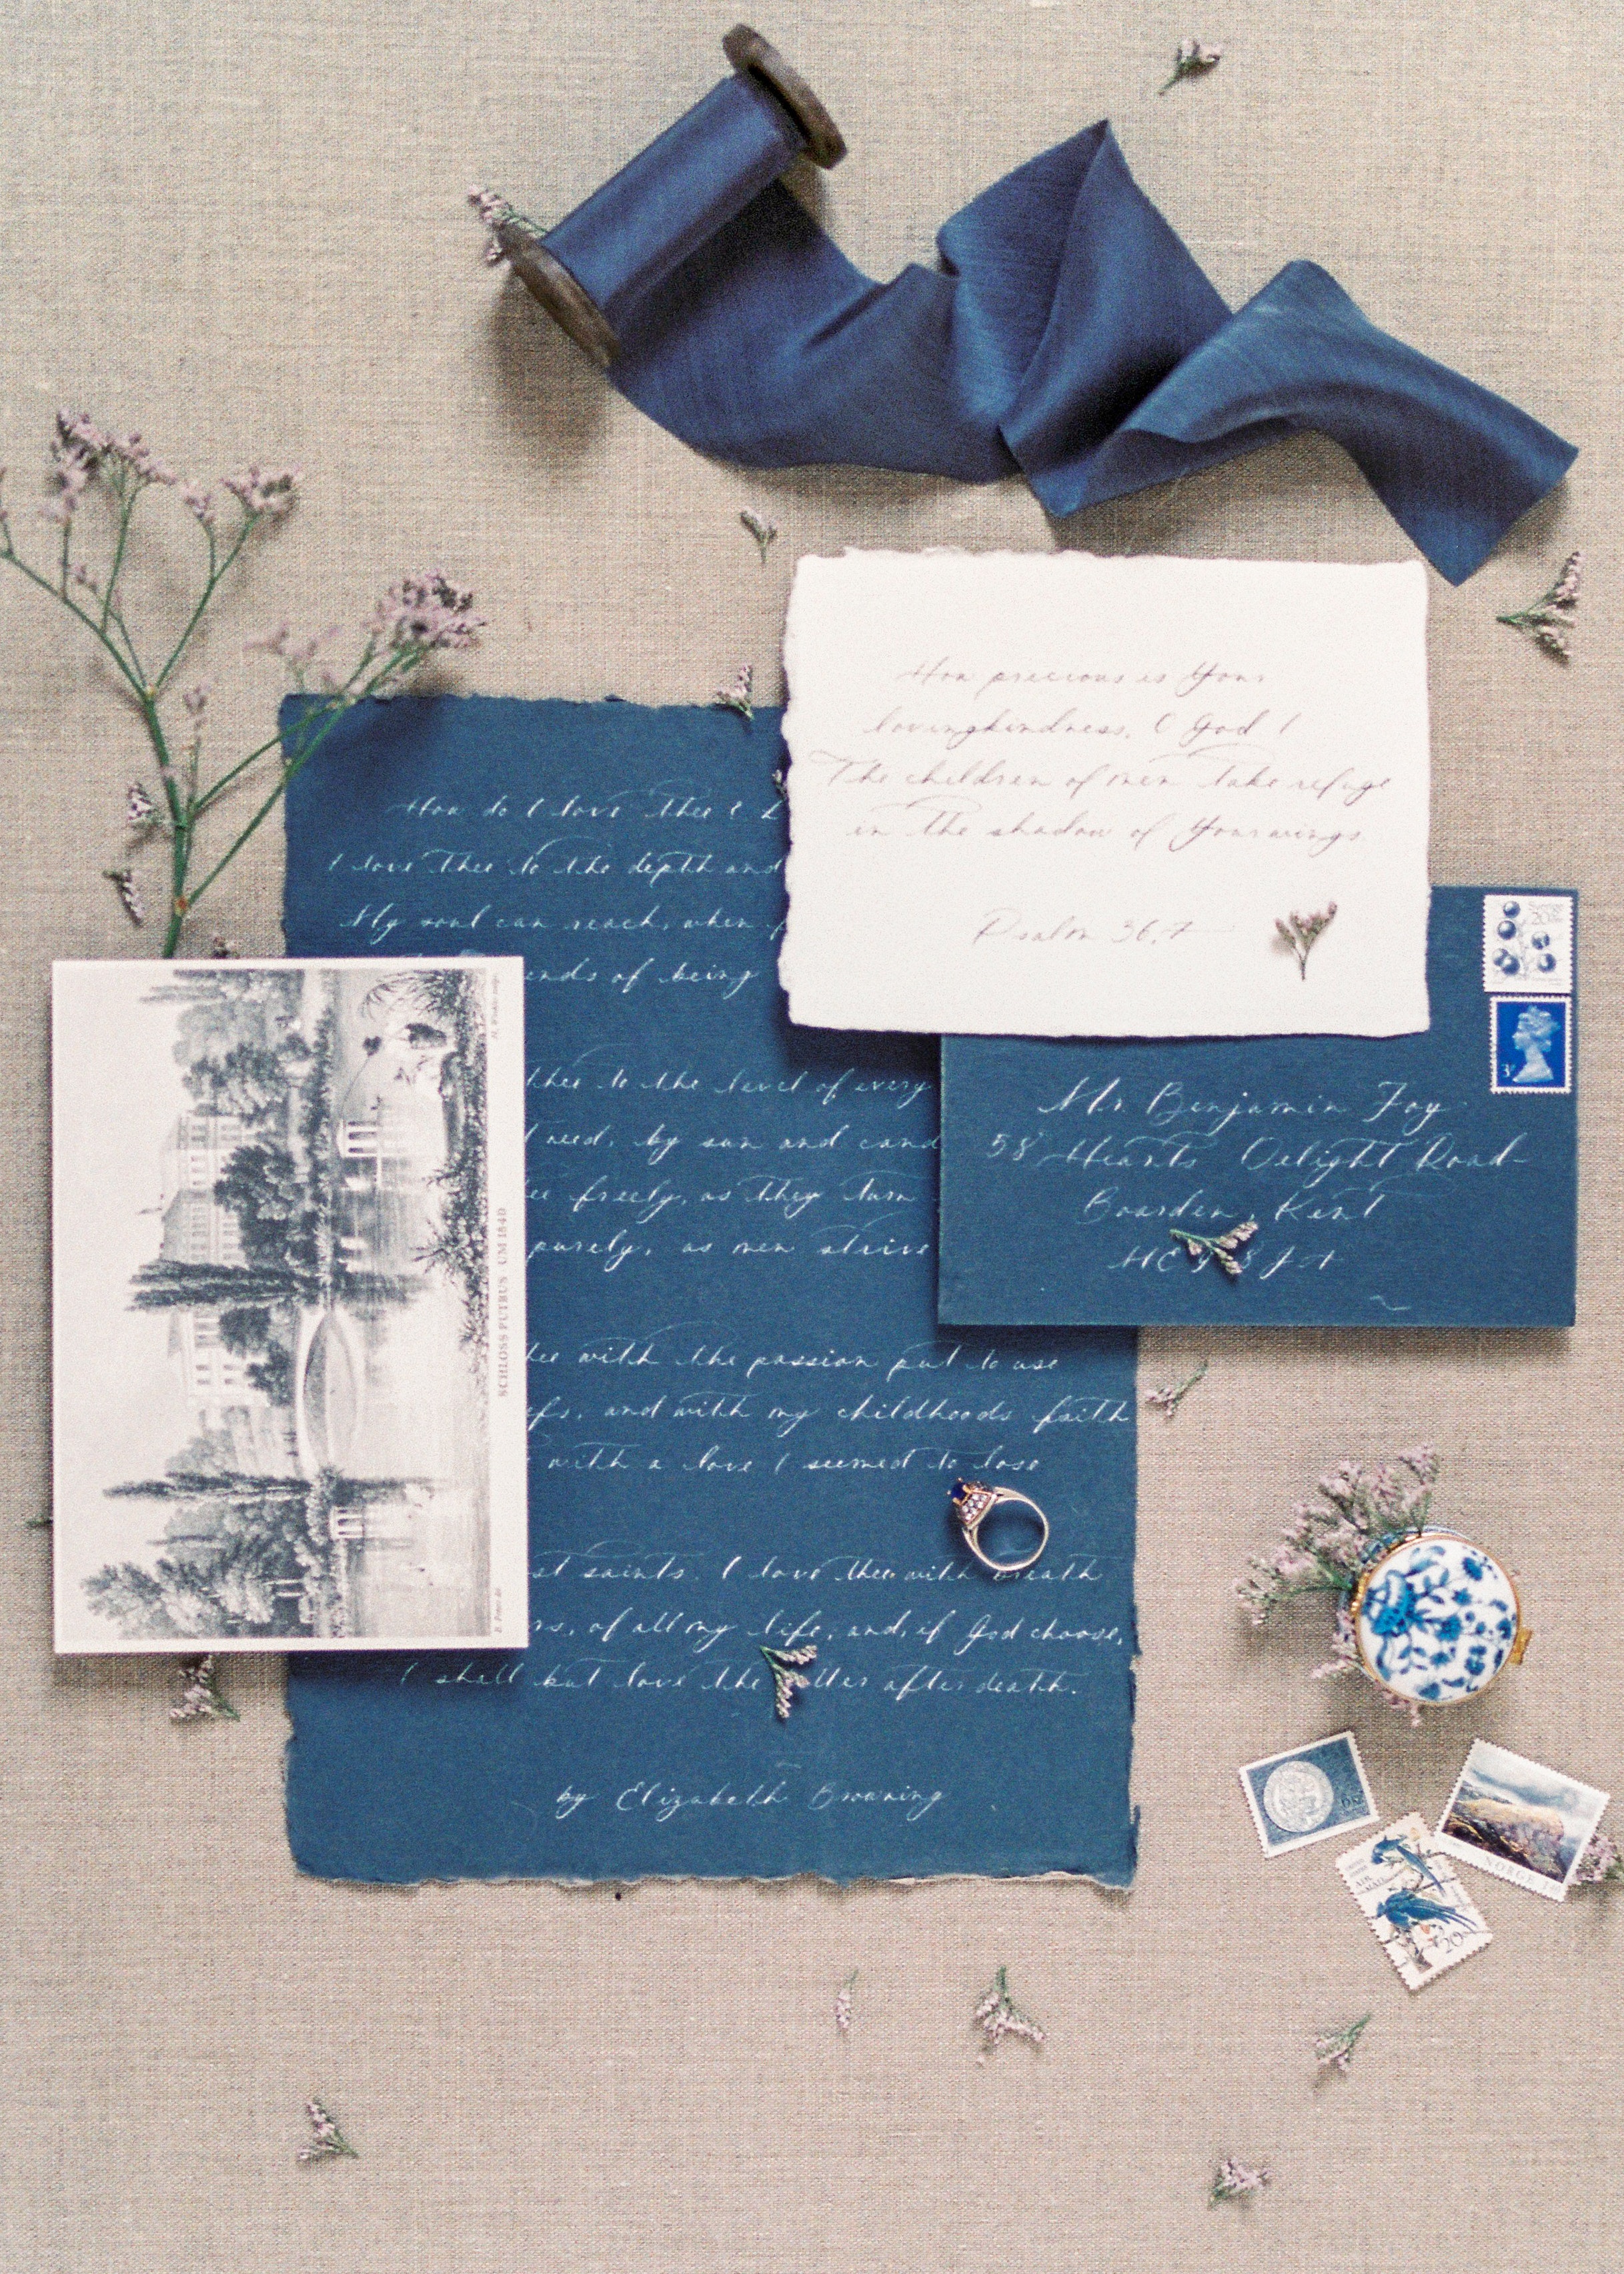 How precious is Your
lovingkindness, O God!
The children of men take refuge
in the shadow of Your wings.
Psalm 36:7
How do I love thee?
I love thee to the depth and
My soul can reach, when
ends of being
thee to the level of every
need, by sun and cand
ee freely, as they turn
purely, as men strive
hee with the passion put to use
efs, and with my childhoods faith
with a love I seemed to lose
st saints. I love thee with breath
rs, of all my life, and, if God choose,
I shall but love thee better after death.
by Elizabeth Browning
Mr. Benjamin Foy
58 Hearts Delight Road
Boarden, Kent
Sverige
20
3P
SCHLOSS PUTBUS UM 1840
6KR
NORGE
AIR
MAIL
20c